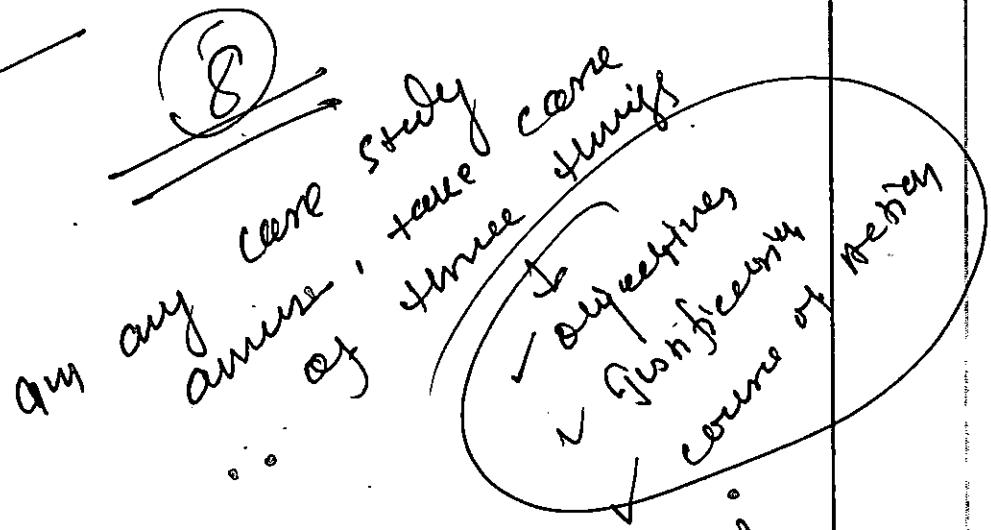 8
any case study
answer, take care
of three things
✓ objectives
✓ Justification
✓ course of Action